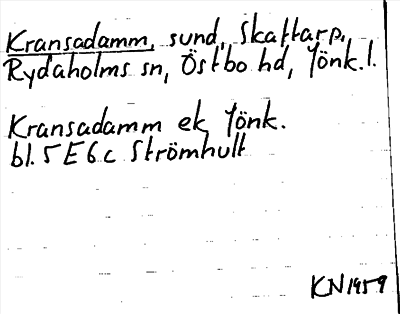 Kransadamm, sund, Skattarp,
Rydaholms sn, Östbo hd, Jönk.l.
Kransadamm ek Jönk.
bl. 5 E 6 c Strömhult
KN 1959